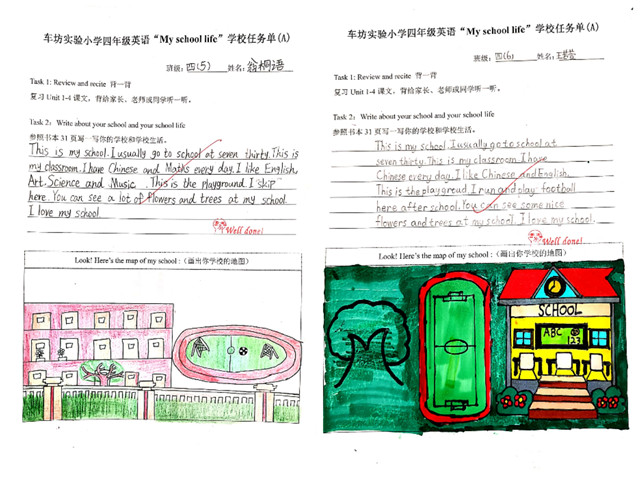 车坊实验小学四年级英语“My school life”学校任务单(A)
班级：四(5) 姓名：翁桐语
Task 1: Review and recite 背一背
复习 Unit 1-4 课文，背给家长、老师或同学听一听。
Task 2: Write about your school and your school life
参照书本 31 页写一写你的学校和学校生活。
This is my school. I usually go to school at seven thirty. This is
my classroom. I have Chinese and Maths every day. I like English,
Art, Science and Music. This is the playground. I skip
here. You can see a lot of flowers and trees at my school.
I love my school.
Well done!
Look! Here's the map of my school :（画出你学校的地图）
车坊实验小学四年级英语“My school life”学校任务单(A)
班级：四(6) 姓名：
Task 1: Review and recite 背一背
复习 Unit 1-4 课文，背给家长、老师或同学听一听。
Task 2: Write about your school and your school life
参照书本 31 页写一写你的学校和学校生活。
This is my school. I usually go to school at
seven thirty. This is my classroom. I have
Chinese every day. I like Chinese and English.
This is the playgroud. I run and play football
here after school. You can see some nice
flowers and trees at my school. I love my school.
Well done!
Look! Here's the map of my school :（画出你学校的地图）
SCHOOL
ABC
123